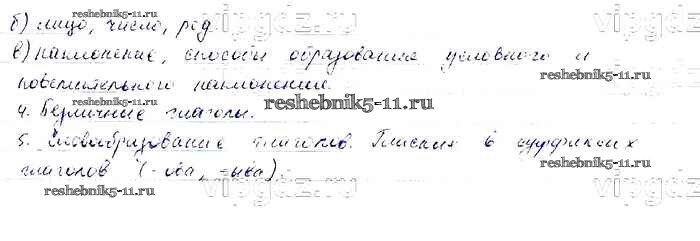 б) лицо, число, род
в) наклонение, способы образование условного и
повелительного наклонения.
4. Безличные глаголы.
5. Словообразование глаголов. Гласная в суффиксах
глаголов (-ова, -ыва).
reshebnik5-11.ru
reshebnik5-11.ru
reshebnik5-11.ru
reshebnik5-11.ru
reshebnik5-11.ru
vipgdz
vipgdz
vipgdz